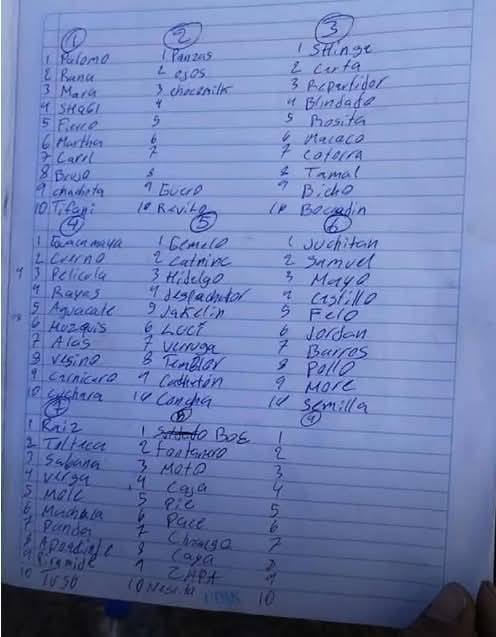 1 2 3
1 Palomo 1 Panzas 1 Stinge
2 Rana 2 ojos 2 Carta
3 Mara 3 chocomilk 3 Repartidor
4 4 4 Blindado
5 5 5 Rosita
6 Martha 6 6 Macaco
7 7 7 Cotorra
8 8 8 Tamal
9 9 Guero 9 Bicho
10 Tifani 10 10
4 5 6
1 Guacamaya 1 Gemelo 1 Juchitan
2 Cuerno 2 2 Samuel
3 Pelicola 3 Hidalgo 3 Mayo
4 Rayas 4 despachador 4 Castillo
5 Aguacate 5 Jakelin 5 Felo
6 6 Luci 6 Jordan
7 Alas 7 Verruga 7 Barros
8 vesino 8 Temblor 8 Pollo
9 carnicero 9 9 More
10 cuchara 10 Concha 10 Semilla
7 8 9
1 Raiz 1 BOE 1
2 Tolteca 2 Fontanero 2
3 Sabana 3 Moto 3
4 Verga 4 Casa 4
5 Mole 5 Pie 5
6 6 Pace 6
7 7 Chango 7
8 8 8
9 Piramide 9 ZAPA 9
10 10 10